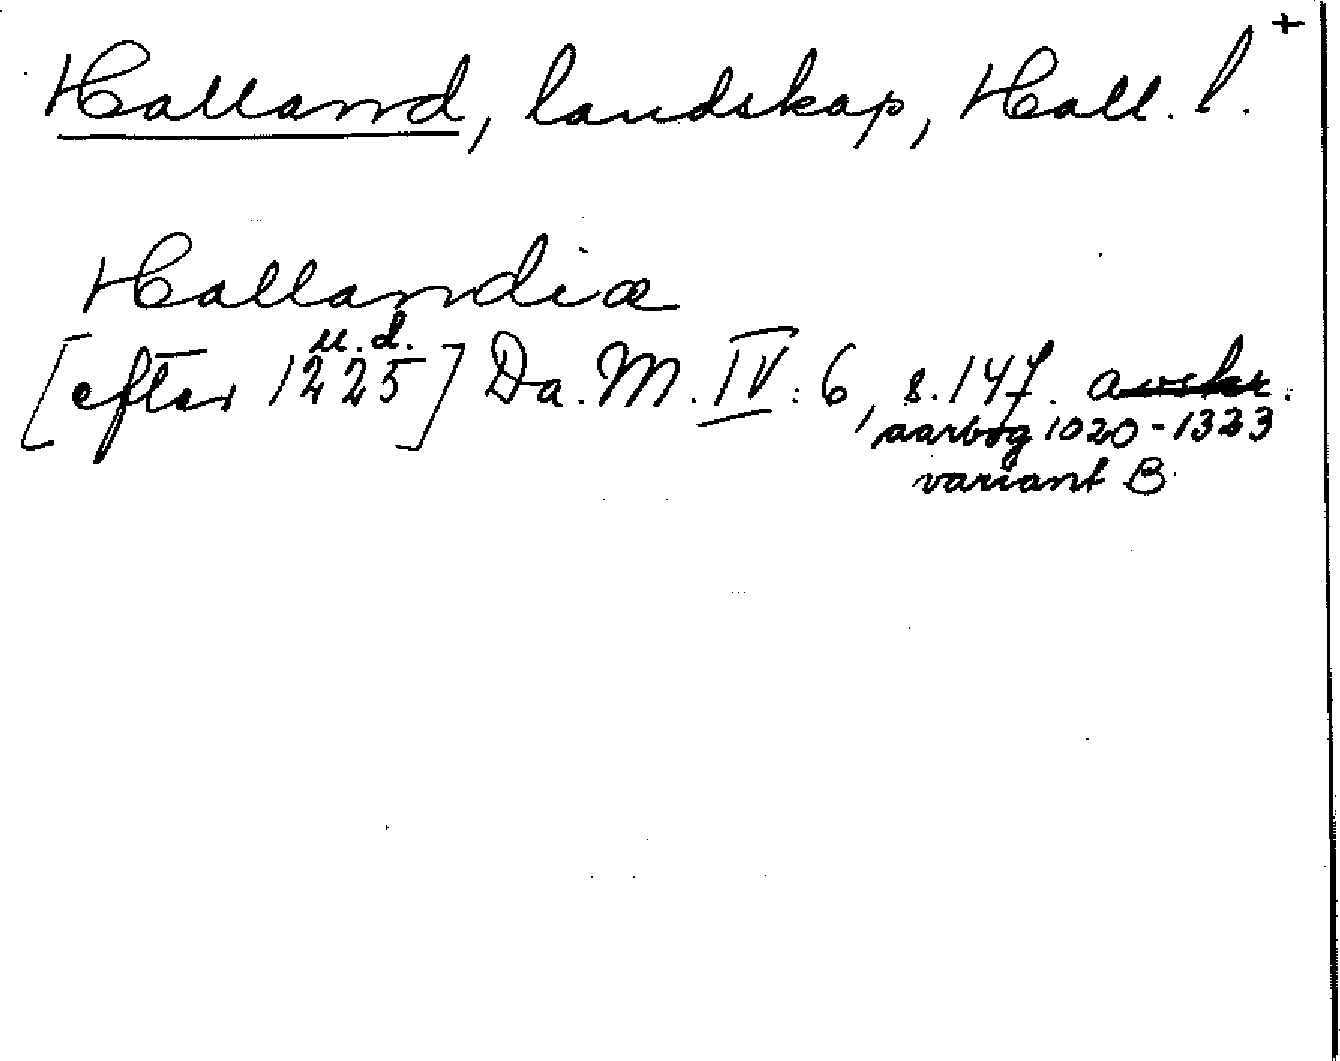 Halland, landskap, Hall. l. +
Hallandiæ
u.d.
[efter 1225] Da. M. IV: 6, s. 147. avskr.
aarbog 1020-1323
variant B